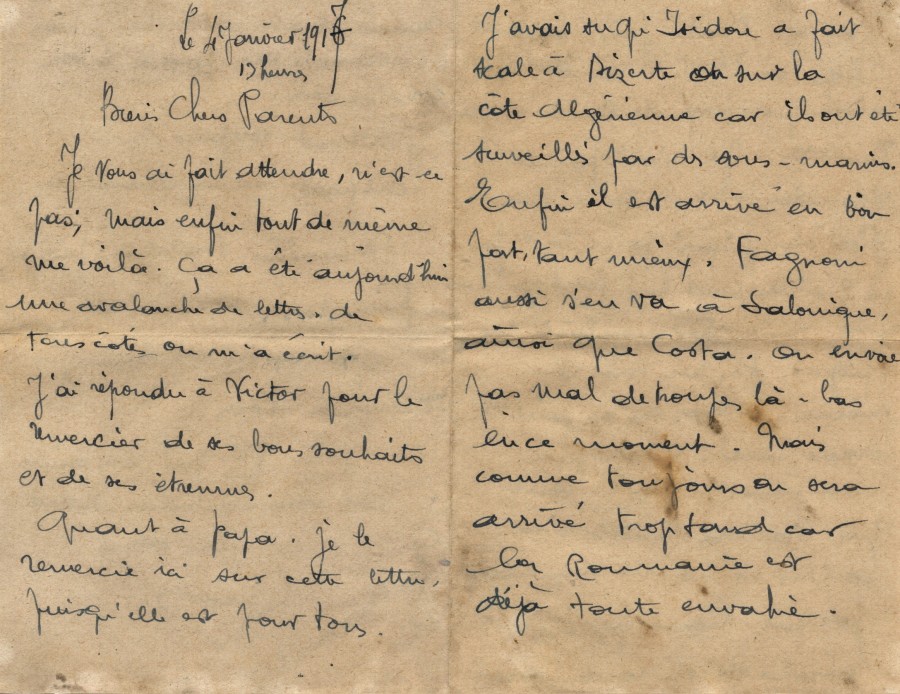 Le 4 Janvier 1917
17 heures
Biens Chers Parents.
Je vous ai fait attendre, n'est-ce
pas; mais enfin tout de même
me voilà. Ça a été aujourd'hui
une avalanche de lettres. de
tous côtés on m'a écrit.
J'ai répondu à Victor pour le
remercier de ses bons souhaits
et de ses étrennes.
Quant à papa. je le
remercie ici sur cette lettre,
puisqu'elle est pour tous.
J'avais su qu'Isidore a fait
scale à Bizerte ou sur la
côte Algérienne car ils ont été
surveillés par des sous-marins.
Enfin il est arrivé en bon
port, tant mieux. Fagnoni
aussi s'en va à Salonique,
ainsi que Costa. On envoie
pas mal de troupes là-bas
en ce moment. Mais
comme toujours on sera
arrivé trop tard car
la Roumanie est
déjà toute envahie.